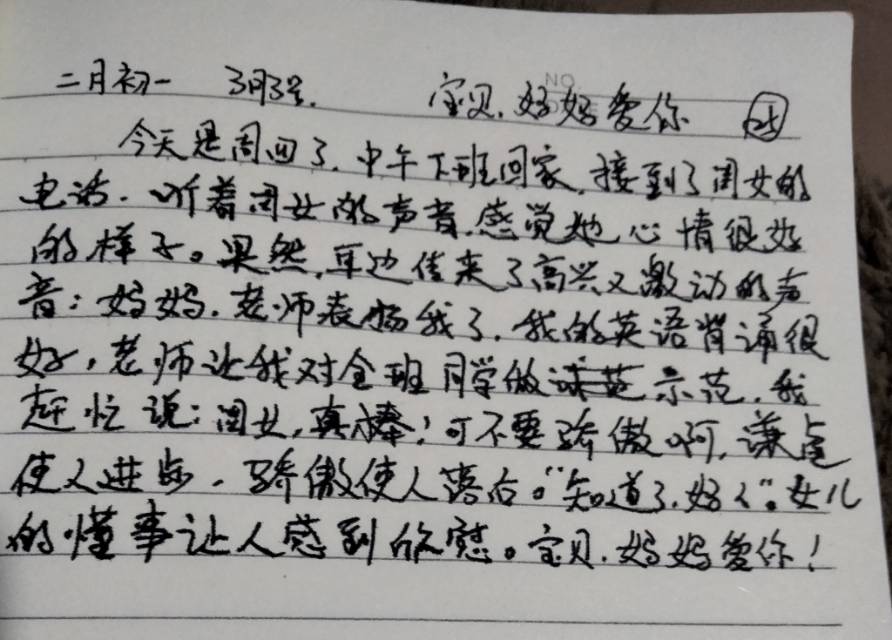 二月初一 3月3号. 宝贝,妈妈爱你
NO
今天是周四了,中午下班回家,接到了闺女的
电话.听着闺女的声音,感觉她心情很好
的样子。果然,耳边传来了高兴又激动的声
音:妈妈,老师表扬我了,我的英语背诵很
好,老师让我对全班同学做示范,我
赶忙说:闺女,真棒!可不要骄傲啊,谦虚
使人进步,骄傲使人落后。“知道了,妈妈”。女儿
的懂事让人感到欣慰。宝贝,妈妈爱你!